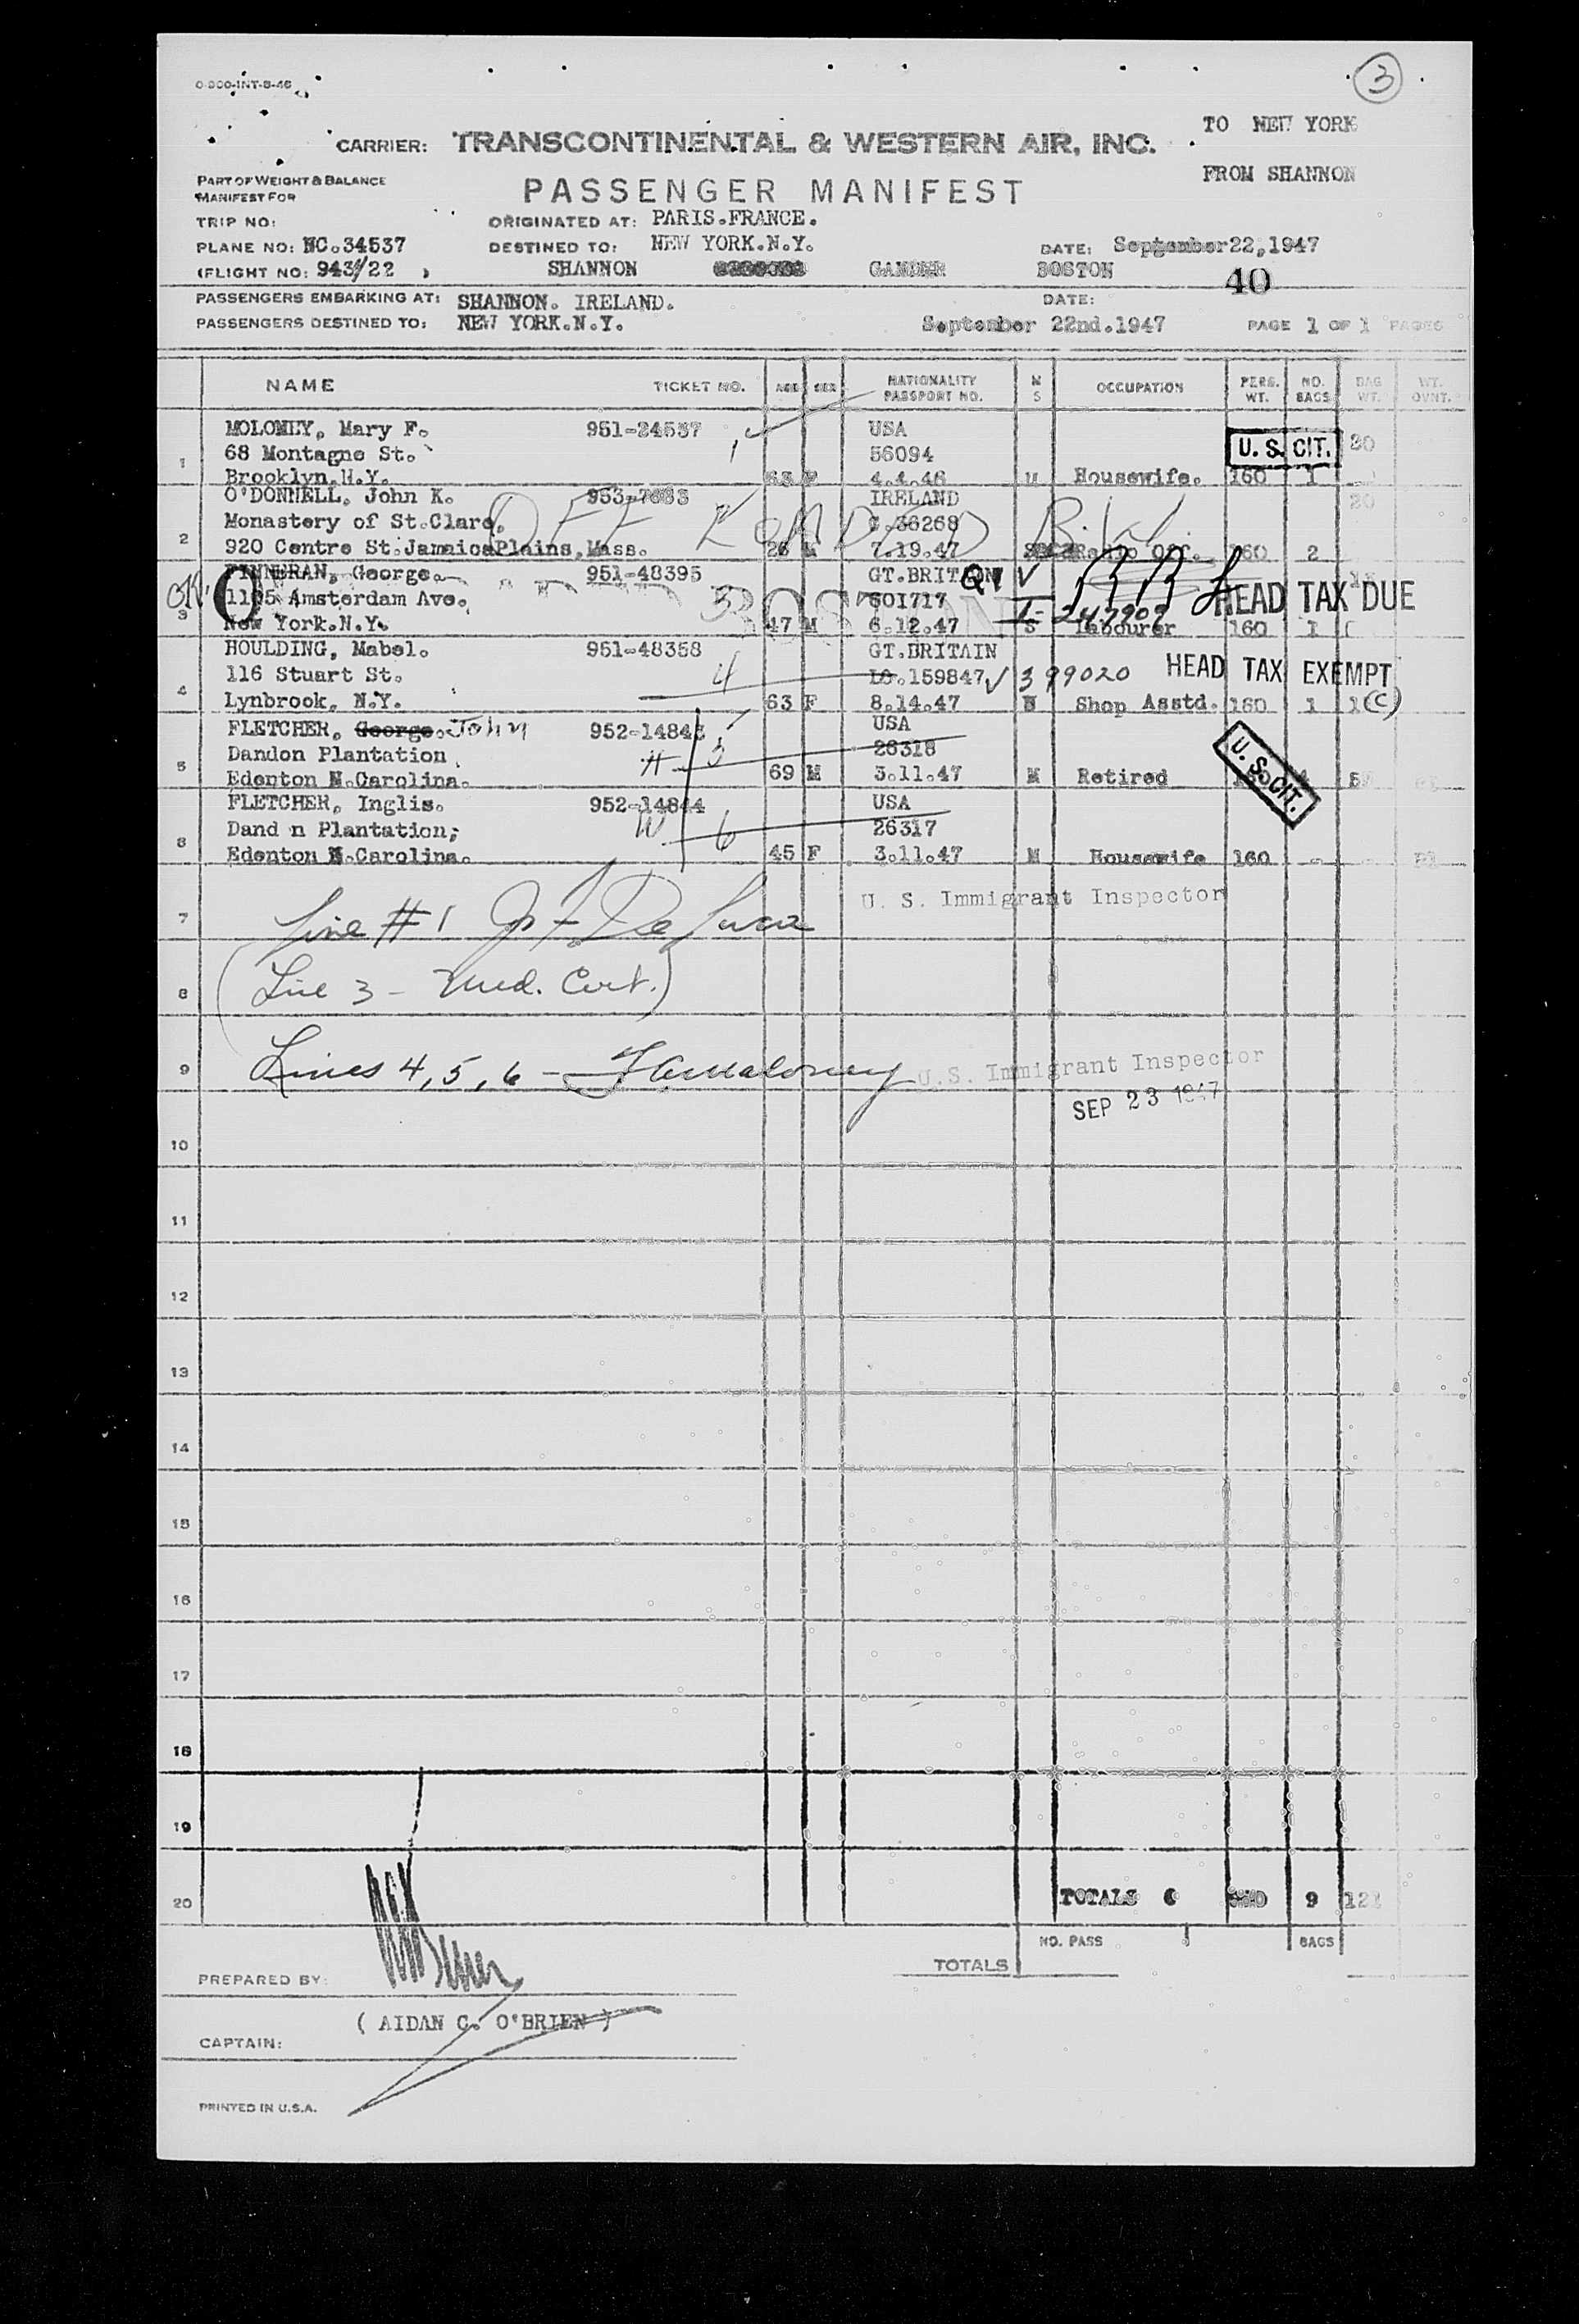 3
O-300-INT-8-46
TO NEW YORK
CARRIER: TRANSCONTINENTAL & WESTERN AIR, INC.
FROM SHANNON
PART OF WEIGHT & BALANCE
MANIFEST FOR
PASSENGER MANIFEST
TRIP NO: ORIGINATED AT: PARIS.FRANCE.
PLANE NO: NC.34537 DESTINED TO: NEW YORK.N.Y. DATE: September22,1947
(FLIGHT NO: 943/22 ) SHANNON GANDER BOSTON
40
PASSENGERS EMBARKING AT: SHANNON. IRELAND. DATE:
PASSENGERS DESTINED TO: NEW YORK.N.Y. September 22nd.1947 PAGE 1 OF 1 PAGES
NAME TICKET NO. AGE SEX NATIONALITY PASSPORT NO. M S OCCUPATION PERS. WT. NO. BAGS BAG WT. WT. OVNT.
MOLONEY, Mary F. 951-24537 USA
1 68 Montagne St. 1 56094 U. S. CIT. 20
Brooklyn.N.Y. 63 F 4.4.46 M Housewife. 160 1
O'DONNELL, John K. 953-7683 IRELAND 20
Monastery of St.Clare, OFF LOADED C.36268
2 920 Centre St.JamaicaPlains,Mass. 26 M 7.19.47 Radio Off. 160 2
FINNERAN, George. 951-48395 GT.BRITAIN QI √
OK. 1195 Amsterdam Ave. 3 BOSTON 601717 HEAD TAX DUE
3 New York.N.Y. 47 M 6.12.47 S Labourer 160 1
HOULDING, Mabel. 951-48358 GT.BRITAIN
116 Stuart St. 4 LO.159847 √ 399020 HEAD TAX EXEMPT
4 Lynbrook, N.Y. 63 F 8.14.47 Shop Asstd. 160 1 (C)
FLETCHER, George. John 952-14843 USA
Dandon Plantation H 5 26318 U. S. CIT.
5 Edenton N.Carolina. 69 M 3.11.47 M Retired
FLETCHER, Inglis. 952-14844 USA
Dand n Plantation; W 6 26317
6 Edenton N.Carolina. 45 F 3.11.47 M Housewife 160 -
U. S. Immigrant Inspector
7 Line #1 J. F. De Luca
8 (Line 3 - Med. Cert.)
9 Lines 4, 5, 6 - Maloney U.S. Immigrant Inspector
SEP 23 1947
10
11
12
13
14
15
16
17
18
19
20 TOTALS 6 9
NO. PASS BAGS
TOTALS
PREPARED BY:
( AIDAN C. O'BRIEN )
CAPTAIN:
PRINTED IN U.S.A.